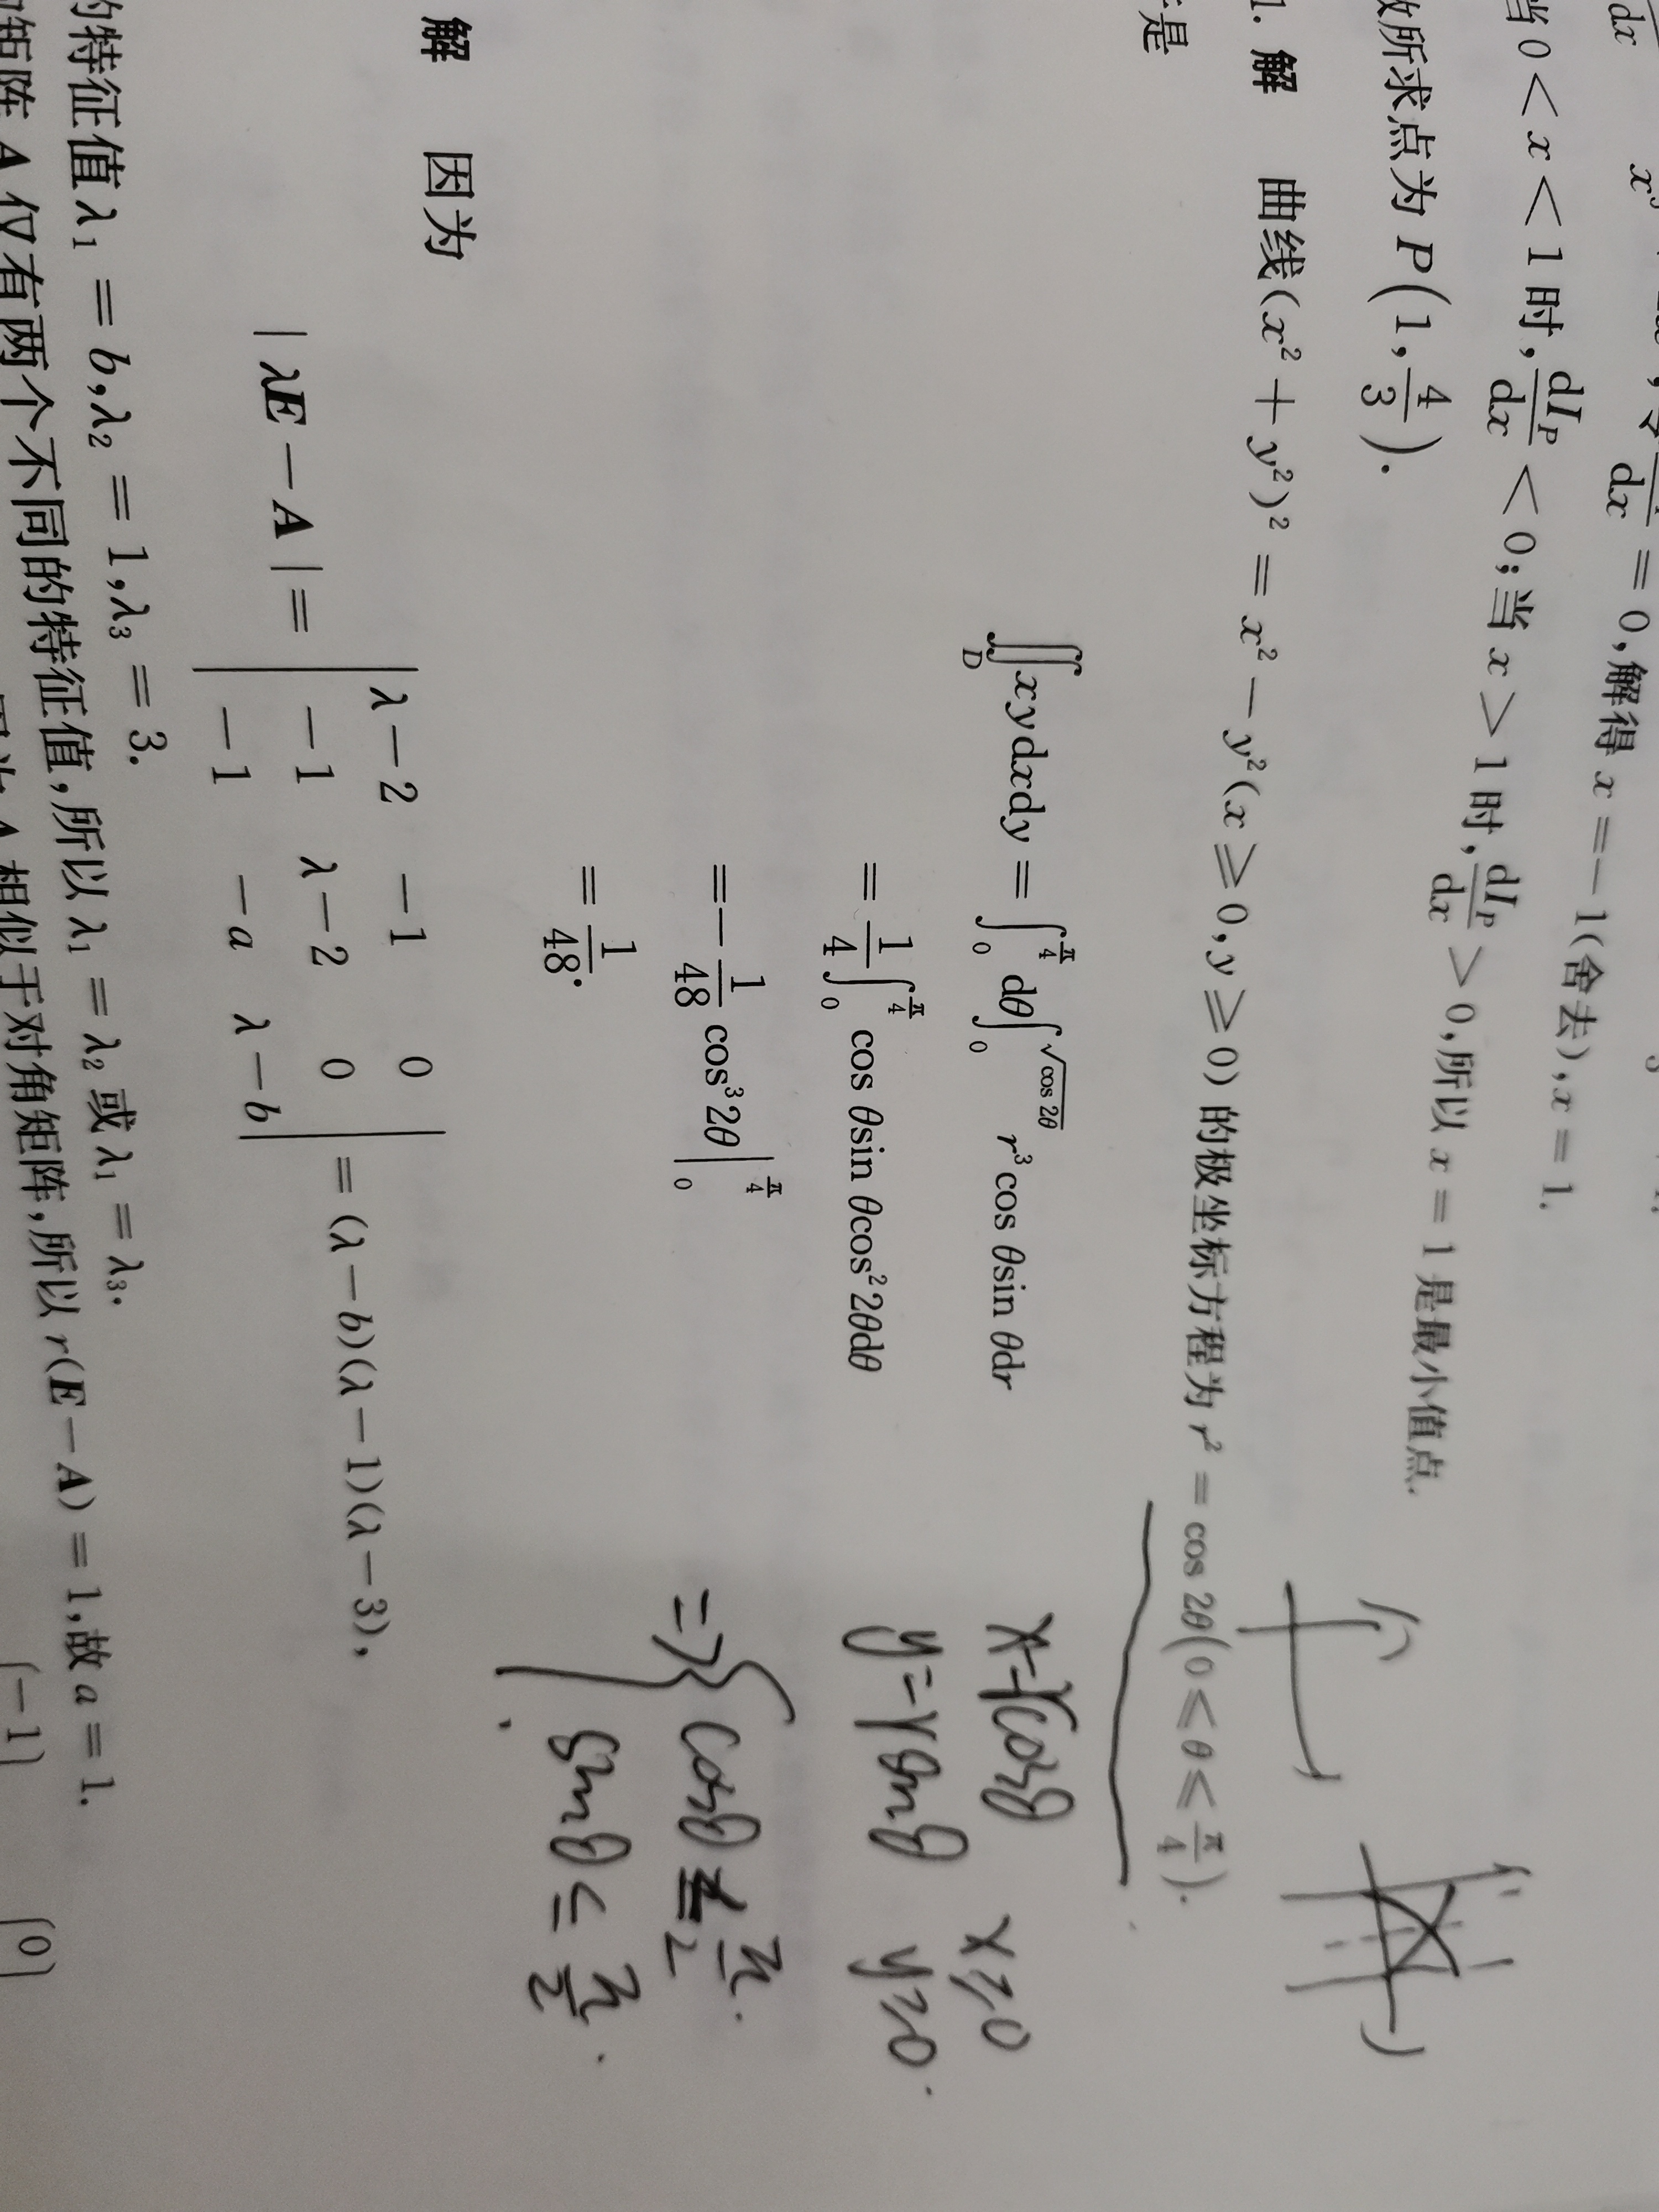 dx x³ dx = 0,解得 x =－1(舍去),x = 1.
当 0 < x < 1 时, dI_P/dx < 0;当 x > 1 时, dI_P/dx > 0,所以 x = 1 是最小值点.
故所求点为 P(1, 4/3).
1. 解 曲线(x² + y²)² = x² － y²(x ⩾ 0,y ⩾ 0) 的极坐标方程为 r² = cos 2θ(0 ⩽ θ ⩽ π/4).
是
∬_D xydxdy = ∫_0^{π/4} dθ∫_0^{√cos 2θ} r³cos θsin θdr
= 1/4 ∫_0^{π/4} cos θsin θcos²2θdθ
=－ 1/48 cos³2θ |_0^{π/4}
= 1/48.
x=rcosθ x⩾0
y=rsinθ y⩾0.
=> { cosθ π/2.
sinθ ⩽ π/2.
解 因为
| λE － A | = | λ－2 －1 0 |
| －1 λ－2 0 | = (λ－b)(λ－1)(λ－3),
| －1 －a λ－b |
的特征值 λ₁ = b,λ₂ = 1,λ₃ = 3.
矩阵 A 仅有两个不同的特征值,所以 λ₁ = λ₂ 或 λ₁ = λ₃.
A 相似于对角矩阵,所以 r(E－A) = 1,故 a = 1.
(－1) (0)